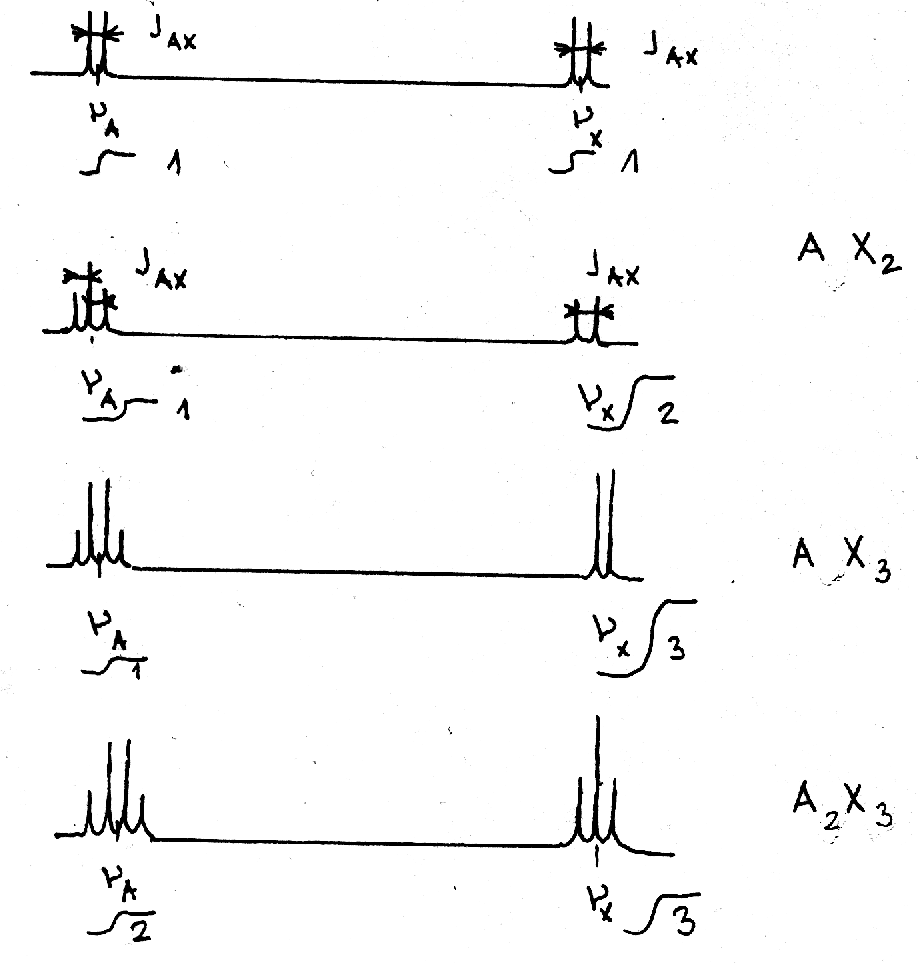 J AX J AX
ν A ν x
1 1
A X 2
J AX J AX
ν A 1 ν x 2
A X 3
ν A 1 ν x 3
A 2 X 3
ν A 2 ν x 3